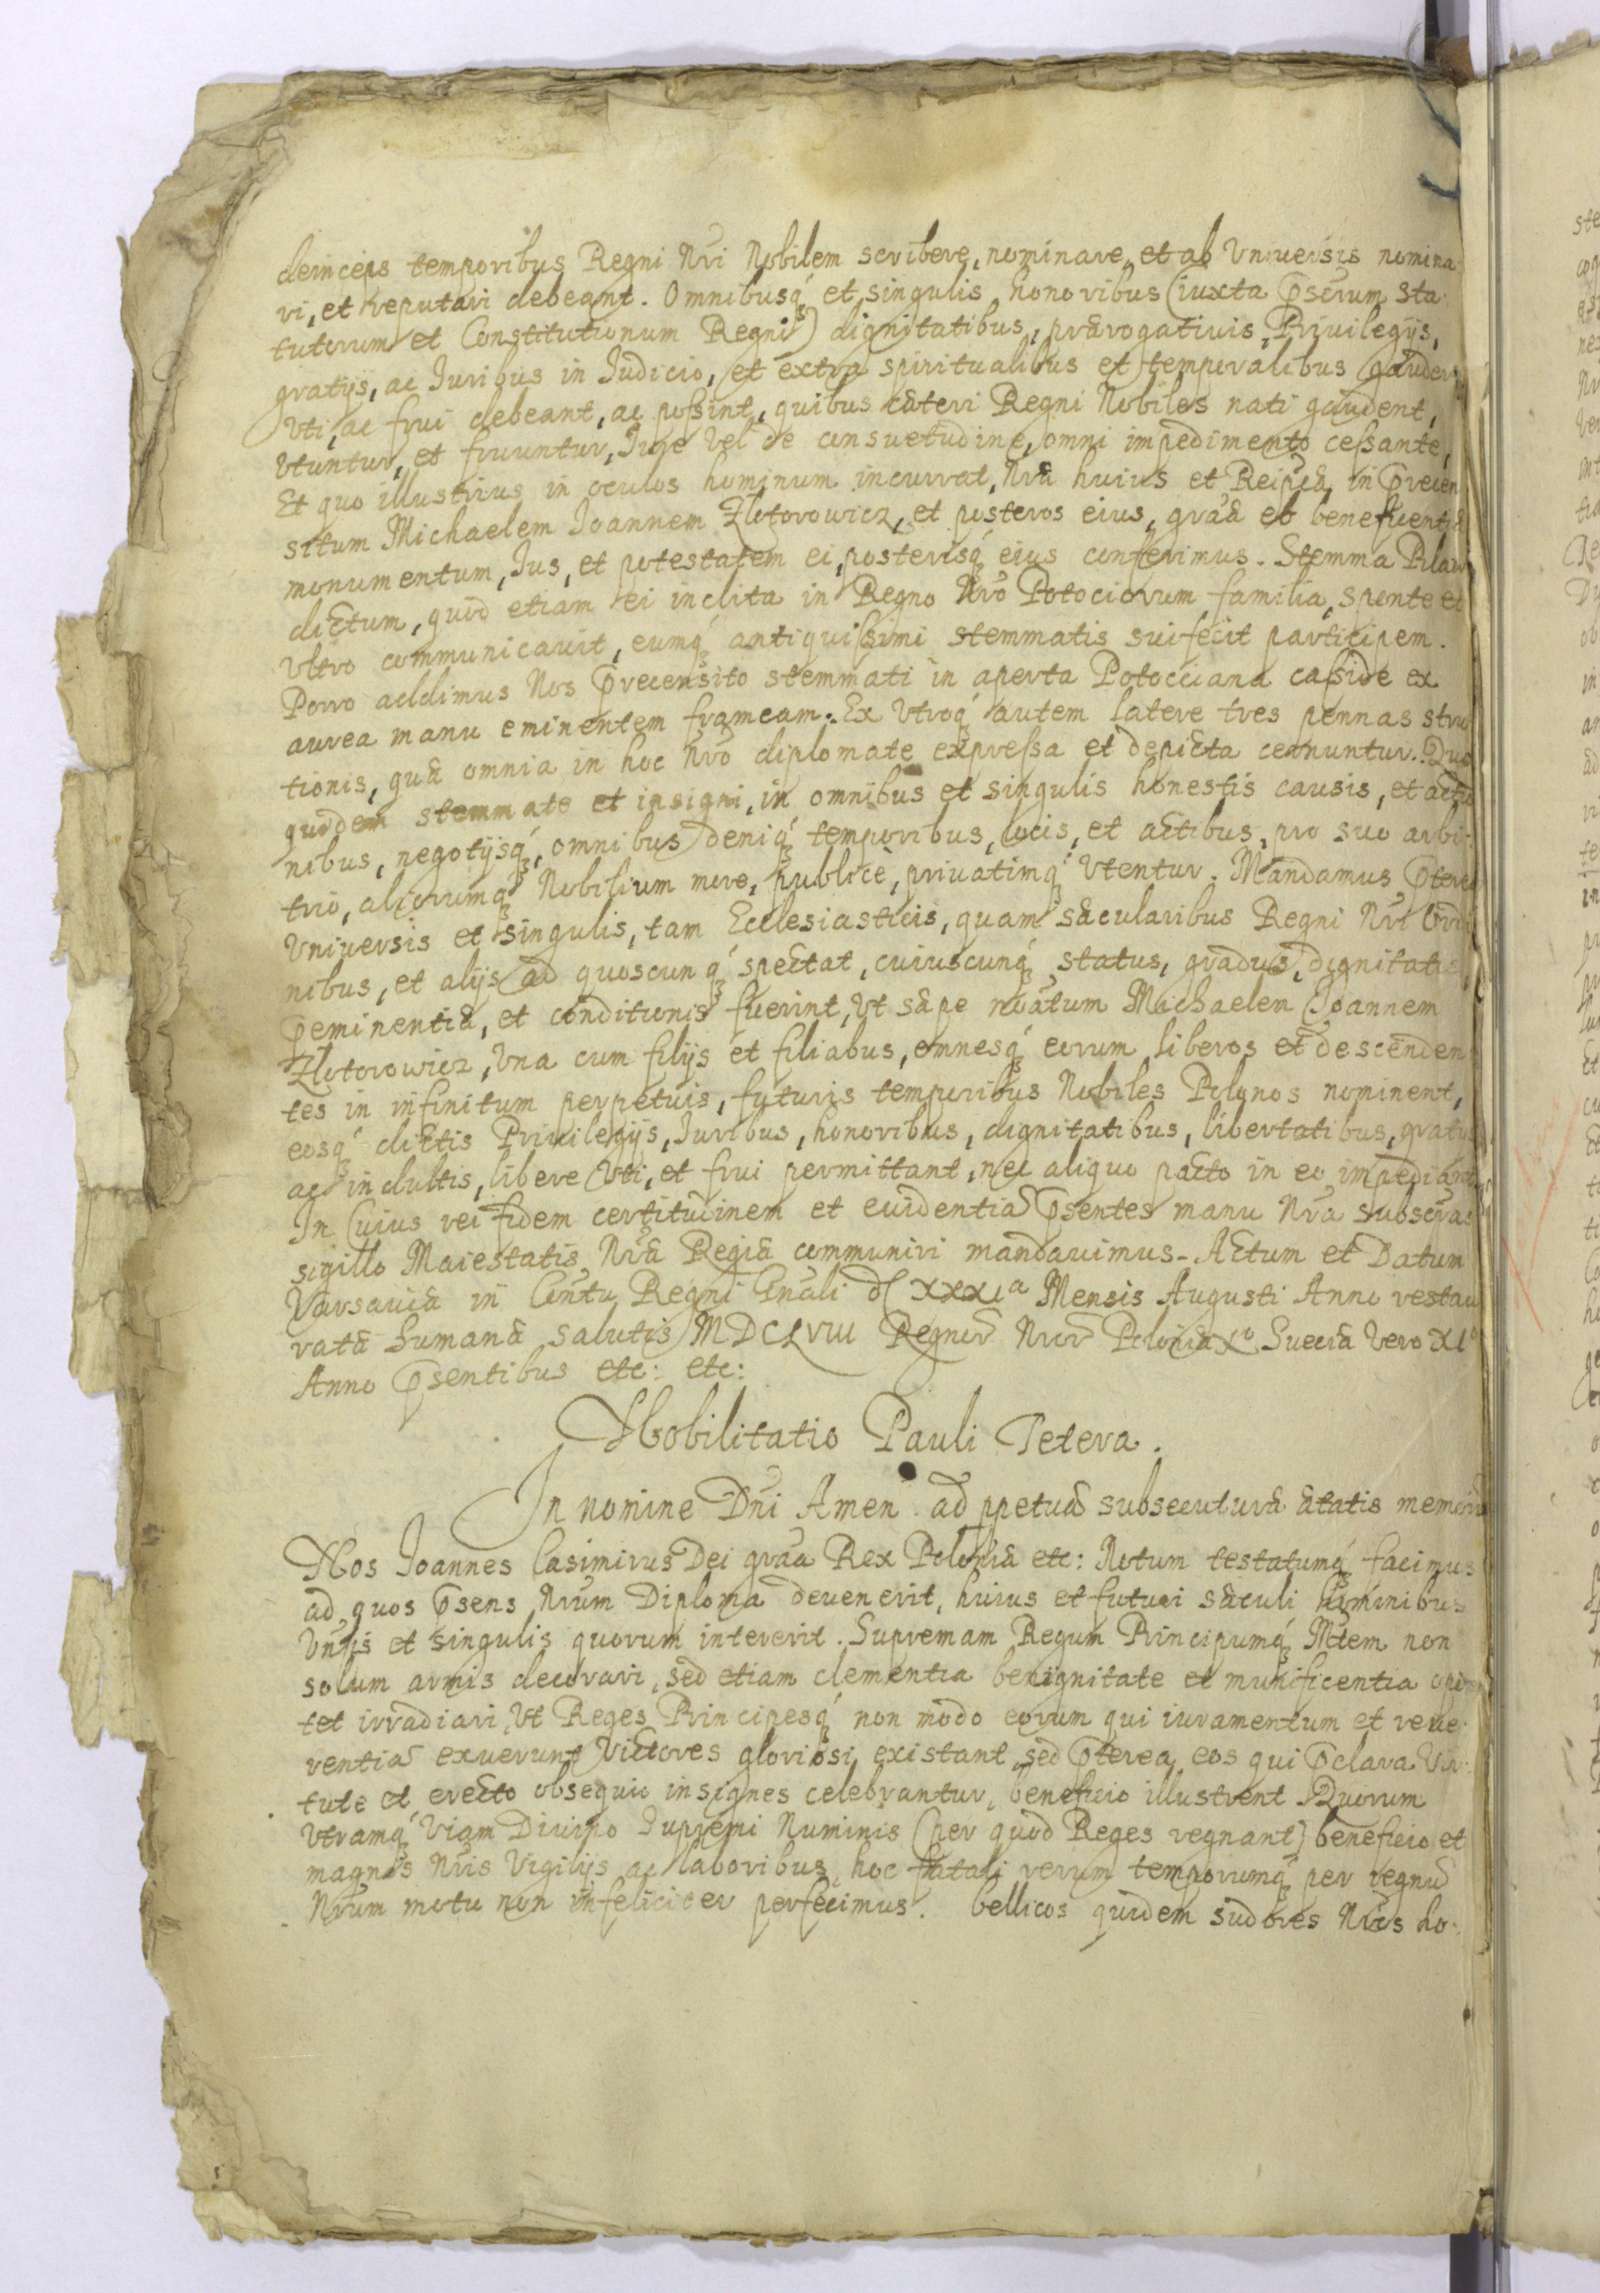 deinceps temporibus Regni Nri Nobilem scribere, nominare, et ab Vniuersis nomina
ri, et reputari debeant. Omnibusq́ et singulis honoribus (iuxta pscrum sta
tutorum et Constitutionum Regni) dignitatibus, prærogatiuis, Priuilegijs,
gratijs, ac Iuribus in Iudicio, et extra spiritualibus et temporalibus gauder
Vti, ac frui debeant, ac possint, quibus cæteri Regni Nobiles nati gaudent,
Vtuntur, et fruuntur, Iure vel de consuetudine, omni impedimento cessante,
Et quo illustrius in oculos hominum incurrat, Nræ huius et Reipcæ in precen
situm Michaelem Joannem Zlotorowicz, et posteros eius, graæ et beneficentiæ
monumentum, Jus, et potestatem ei, posterisq́ eius conferimus. Stemma Pilaw
dictum, quod etiam ei inclita in Regno Nro Potociorum familia, sponte et
Vltro communicauit, eumq́ antiquissimi stemmatis sui fecit participem.
Porro addimus Nos precensito stemmati in aperta Potocciana casside ex
aurea manu eminentem frameam. Ex Vtroq́ autem latere tres pennas stru
tionis, quæ omnia in hoc Nro diplomate expressa et depicta cernuntur. Quo
quidem stemmate et insigni, in omnibus et singulis honestis causis, et actio
nibus, negotijsq́, omnibus deniq́ temporibus, locis, et actibus, pro suo arbi-
trio, aliorumq́ Nobilium more, publicè, priuatimq́ Vtentur. Mandamus pterea
Vniuersis et singulis, tam Ecclesiasticis, quam sæcularibus Regni Nri Ordi
nibus, et alijs ad quoscunq́ spectat, cuiuscunq́ status, gradus, dignitatis,
peminentiæ, et conditionis fuerint, Vt sæpe nŏatum Michaelem Joannem
Zlotorowicz, Vna cum filijs et filiabus, omnesq́ eorum liberos et descenden
tes in infinitum perpetuis, futuris temporibus Nobiles Polonos nominent,
eosq́ dictis Priuilegijs, Iuribus, honoribus, dignitatibus, libertatibus, gratijs
ac indultis, libere Vti, et frui permittant, nec aliquo pacto in eo impediant.
In Cuius rei fidem certitudinem et euidentiã psentes manu Nra subscras
sigillo Maiestatis Nræ Regiæ communiri mandauimus. Actum et Datum
Varsauiæ in Contu Regni Gnali d. xxxia Mensis Augusti Anno restau
ratæ humanæ salutis MDCLVIII Regnor Nror Poloniæ Xo Sueciæ Vero XIo
Anno psentibus etc: etc:
Nobilitatio Pauli Tetera.
In nomine Dni Amen. ad ppetuã subsecuturæ ætatis memoriã
Nos Joannes Casimirus Dei graa Rex Poloniæ etc: Notum testatumq́ facimus
ad quos psens Nrum Diploma deuenerit, huius et futuri sæculi hominibus
Vnijs et singulis quorum intererit. Supremam Regum Principumq́ Mtem non
solum armis decorari, sed etiam clementia benignitate et munificentia opor
tet irradiari, Vt Reges Principesq́ non modo eorum qui iuramentum et reue-
rentiã exuerunt Victores gloriosi existant, sed pterea eos qui pclara Vir-
tute et erecto obsequio insignes celebrantur, beneficio illustrent. Quorum
Vtramq́ Viam Diuino Supremi Numinis (per quod Reges regnant) beneficio et
magnis Nris Vigilijs ac laboribus, hoc fatali rerum temporumq́ per regnũ
Nrum motu non infeliciter perfecimus. bellicos quidem sudores Nros ho-